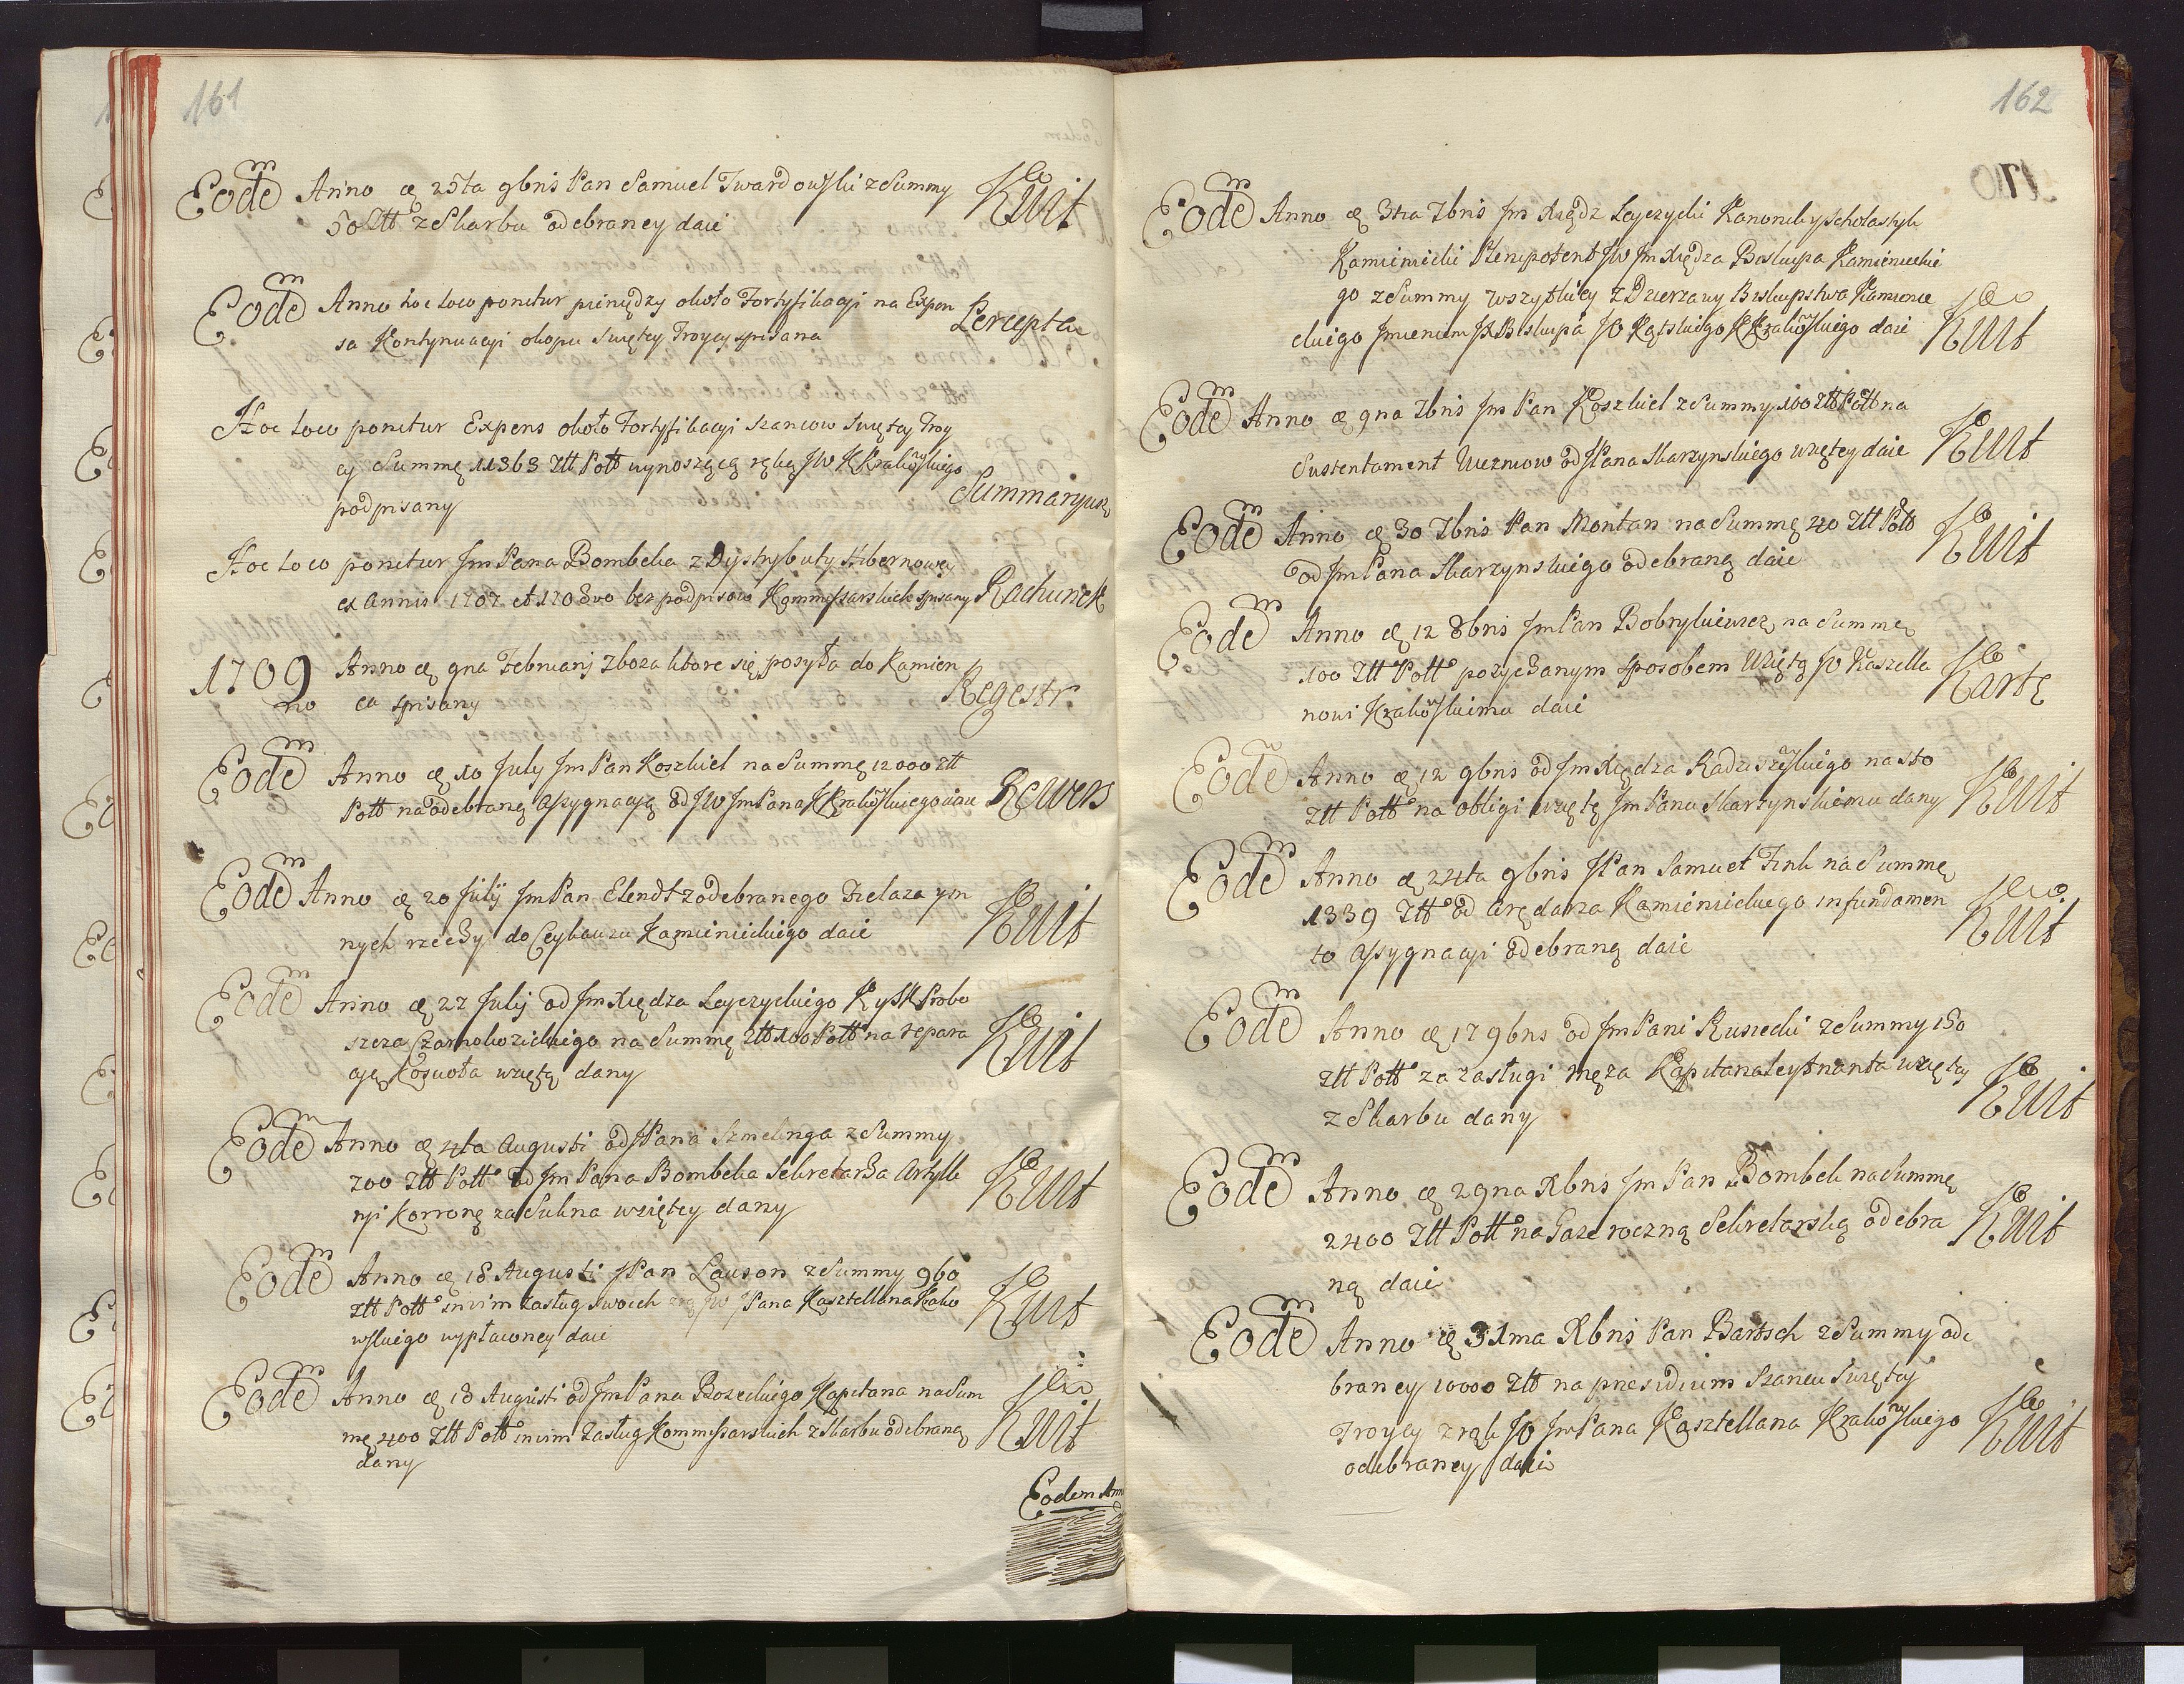 161
Eode Anno æ 25ta 9bris Pan Samuel Twardowski z Summy Kwit
50 Ztt z Skarbu odebraney daie
Eode Anno hoc loco ponitur pieniędzy około Fortyfikacyi na Expen Percepta
sa Kontynuacyi okopu Swiętey Troycy spisana
Hoc loco ponitur Expens około Fortyfikacyi szancow Swiętey Troy
cy Summę 11363 Ztt Poll wynoszącą ręką JW Krakowskiego Summaryusz
podpisany
Hoc loco ponitur Jm Pana Bombeka z Dystrybuty Hibernowey
ex Annis 1707 et 1708vo bez podpisow Kommissarskich spisany Rachunek
1709no Anno æ 9na Februarij Zboza ktore się posyła do Kamien Regestr.
ca spisany
Eode Anno æ 10 July Jm Pan Koszkiel na Summę 12000 Ztt
Poll na odebraną Assygnacyą od JW Jm Pana Krakowskiego daie Rewers
Eode Anno æ 20 Julij Jm Pan Elendt z odebranego Zelaza y in
nych rzeczy do Ceykauzu Kamienieckiego daie Kwit
Eode Anno æ 22 Julij od Jm Xiędza Leyczyckiego K y SK Probo
szcza Czarnokozickiego na Summę Ztt 100 Poll na repara Kwit
cyę Koscioła wziętą dany
Eode Anno æ 4ta Augusti od JPana Szmelinga z Summy
200 Ztt Poll od Jm Pana Bombeka Sekretarza Artylle Kwit
ryi Korronę za Sukna wziętey dany
Eode Anno æ 18 Augusti JPan Lauson z Summy 960
Ztt Poll in vim Zasług swoich JW JPana Kasztellana Krako Kwit
wskiego wypłaconey daie
Eode Anno æ 18 Augusti od Jm Pana Bozeckiego Kapitana na Sum
mę 400 Ztt Poll in vim Zasług Kommissarskich z Skarbu odebraną Kwit
dany
Eodem Ann
162
Eode Anno æ 3tia 7bris Jm Xiądz Leyczycki Kanonik y Scholastyk
Kamieniecki Plenipotent JW Jm Xiędza Biskupa Kamienieckie
go z Summy wszytkiey z Dzierzawy Biskupstwa Kamienie
ckiego Jmieniem JX Biskupa JW Kątskiego K Krakowskiego daie Kwit
Eode Anno æ 9na 7bris Jm Pan Koszkiel z Summy 100 Ztt Poll na
Sustentament Wezniow od JPana Skarzynskiego wziętey daie Kwit
Eode Anno æ 30 7bris Pan Montan na Summę 40 Ztt Poll
od Jm Pana Skarzynskiego odebraną daie Kwit
Eode Anno æ 12 8bris Jm Pan Bobrykiewicz na Summę
100 Ztt Poll pozyczanym sposobem Wziętą JW Kasztella Kartę
nowi Krakowskiemu daie
Eode Anno æ 12 9bris od Jm Xiędza Radziszewskiego na sto
Ztt Poll na obligi wziętę Jm Panu Skarzynskiemu dany Kwit
Eode Anno æ 24ta 9bris JPan Samuel Fink na Summę
1339 Ztt od Arędarza Kamienieckiego in fundamen Kwit
to Assygnacyi odebraną daie
Eode Anno æ 17 9bris od Jm Pani Rusiecki z Summy 150
Ztt Poll za zasługi męza Kapitanaleytnanta wzięty Kwit
z Skarbu dany
Eode Anno æ 29na Xbris Jm Pan Bombek na Summę
2400 Ztt Poll na Gaze roczną Sekretarską odebra Kwit
ną daie
Eode Anno æ 31ma Xbris Pan Bartsch z Summy ode
braney 10000 Ztt na presidium Szancu Swiętey
Troycy z rąk JW Jm Pana Kasztellana Krakowskiego Kwit
odebraney daie